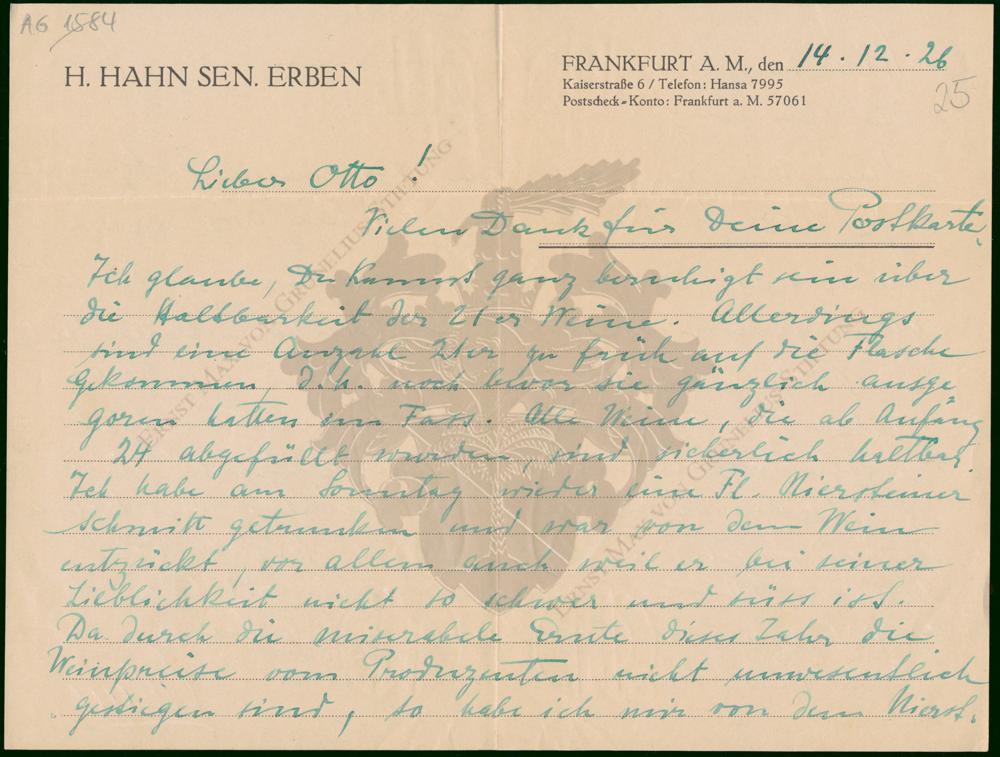 AG 1584
H. HAHN SEN. ERBEN
FRANKFURT A. M., den 14.12.26
Kaiserstraße 6 / Telefon: Hansa 7995
Postscheck-Konto: Frankfurt a. M. 57061
25
Lieber Otto!
Vielen Dank für Deine Postkarte.
Ich glaube, Du kannst ganz beruhigt sein über
die Haltbarkeit der 21er Weine. Allerdings
sind eine Anzahl 21er zu früh auf die Flasche
gekommen, d.h. noch bevor sie gänzlich ausge
goren hatten im Fass. Alle Weine, die ab Anfang
24 abgefüllt wurden, sind sicherlich haltbar.
Ich habe am Sonntag wieder eine Fl. Niersteiner
Schmitt getrunken und war von dem Wein
entzückt, vor allem auch weil er bei seiner
Lieblichkeit nicht so schwer und süss ist.
Da durch die miserabele Ernte dieses Jahr die
Weinpreise vom Produzenten nicht unwesentlich
gestiegen sind, so habe ich mir von dem Nierst.
ERNST MAX VON GRUNELIUS STIFTUNG
ERNST MAX VON GRUNELIUS STIFTUNG